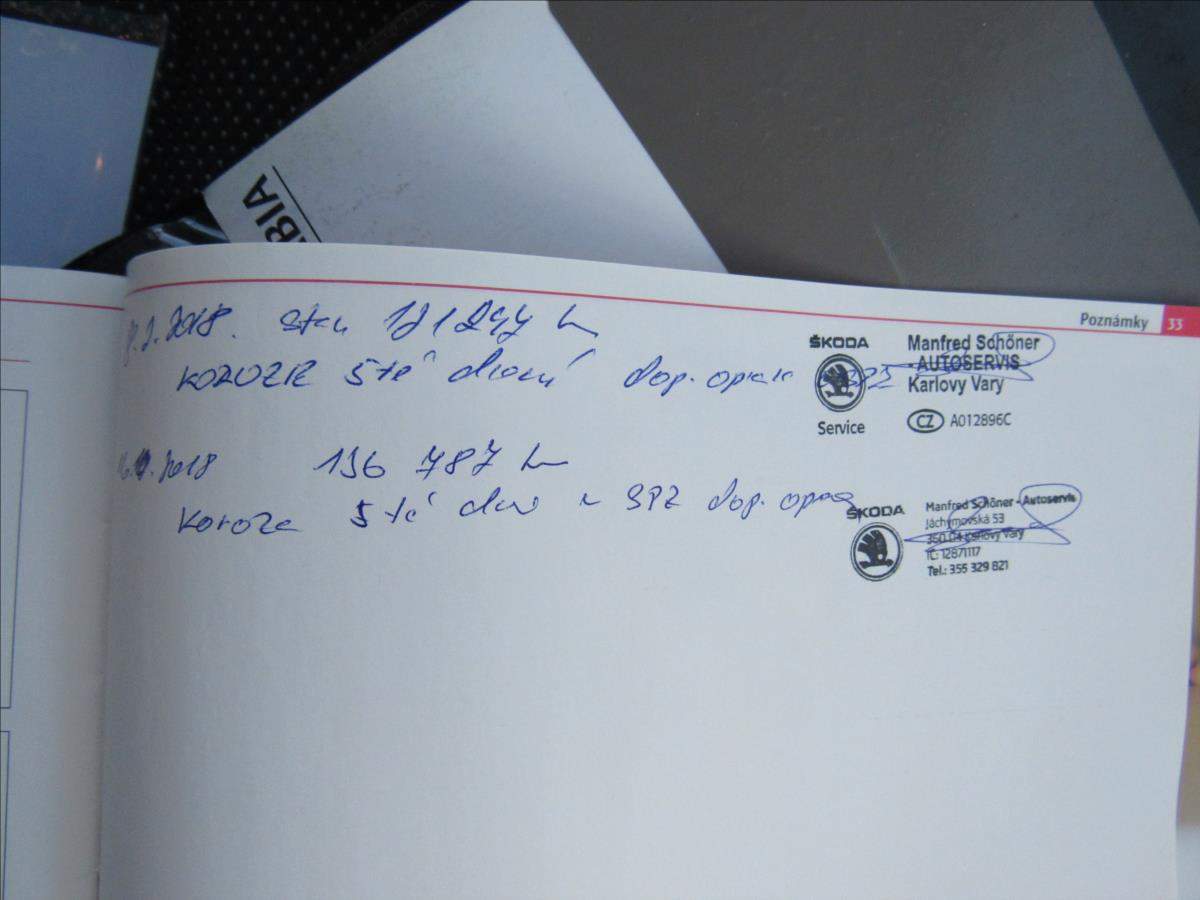 BIA
Poznámky 33
.2.2018. stav 121244 km
KOROZE 5té dveří dop. oprav
ŠKODA
Service
Manfred Schöner
AUTOSERVIS
Karlovy Vary
CZ A012896C
2018 136 787 km
Koroze 5té dv SPZ dop. oprav
ŠKODA
Manfred Schöner - Autoservis
Jáchymovská 53
360 04 Karlovy Vary
IČ: 12871117
Tel.: 355 329 821